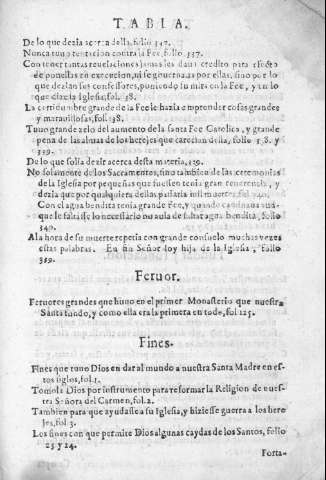 TABLA.
De lo que dezia acerca della, folio 347.
Nunca tuuo tentacion contra la Fee, folio 337.
Con tener tantas reuelaciones jamas les daua credito para efecto
de ponellas en execucion, ni se gouernaua por ellas, sino por lo
que dezian sus confessores, poniendo la mira en la Fee, y en lo
que dize la Iglesia, fol. 38.
La certidumbre grande de la Fee le hazia emprender cosas grandes
y marauillosas, fol. 38.
Tuuo grande zelo del aumento de la santa Fee Catolica, y grande
pena de las almas de los herejes que carecian della, folio 338. y
339.
De lo que solia dezir acerca desta materia, 339.
No solamente de los Sacramentos, sino tambien de las ceremonias
de la Iglesia por pequeñas que fuessen tenia gran reuerencia, y
dezia que por qualquiera dellas passaria mil muertes, fol. 340.
Con el agua bendita tenia grande Fee, y quando caminaua aun-
que le faltasse lo necessario no auia de faltar agua bendita, folio
340.
A la hora de su muerte repetia con grande consuelo muchas vezes
estas palabras. En fin Señor soy hija de la Iglesia, folio
359.
Feruor.
Feruores grandes que huuo en el primer Monasterio que nuestra
Santa fundo, y como ella era la primera en todo, fol. 125.
Fines.
Fines que tuuo Dios en dar al mundo a nuestra Santa Madre en es-
tos siglos, fol. 1.
Tomola Dios por instrumento para reformar la Religion de nues-
tra Señora del Carmen, fol. 2.
Tambien para que ayudasse a su Iglesia, y hiziesse guerra a los here
jes, fol. 3.
Los fines con que permite Dios algunas caydas de los Santos, folio
23 y 24.
Forta-